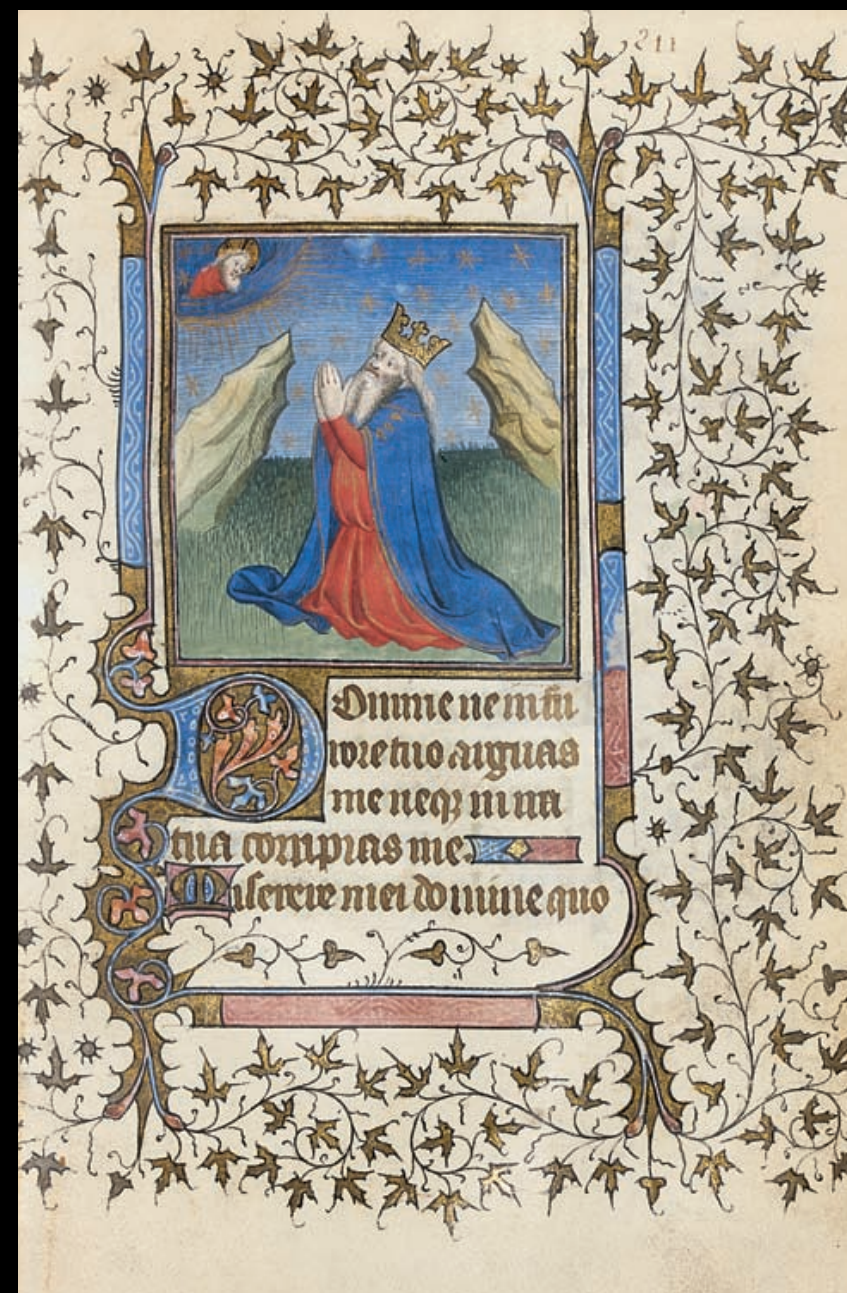 211
Domine ne in fu
rore tuo arguas
me neqꝫ in ira
tua corripias me.
Miserere mei domine quo